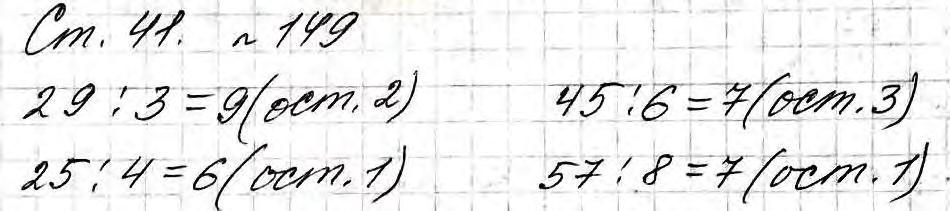 Ст. 41. № 149
29 : 3 = 9 (ост. 2) 45 : 6 = 7 (ост. 3)
25 : 4 = 6 (ост. 1) 57 : 8 = 7 (ост. 1)